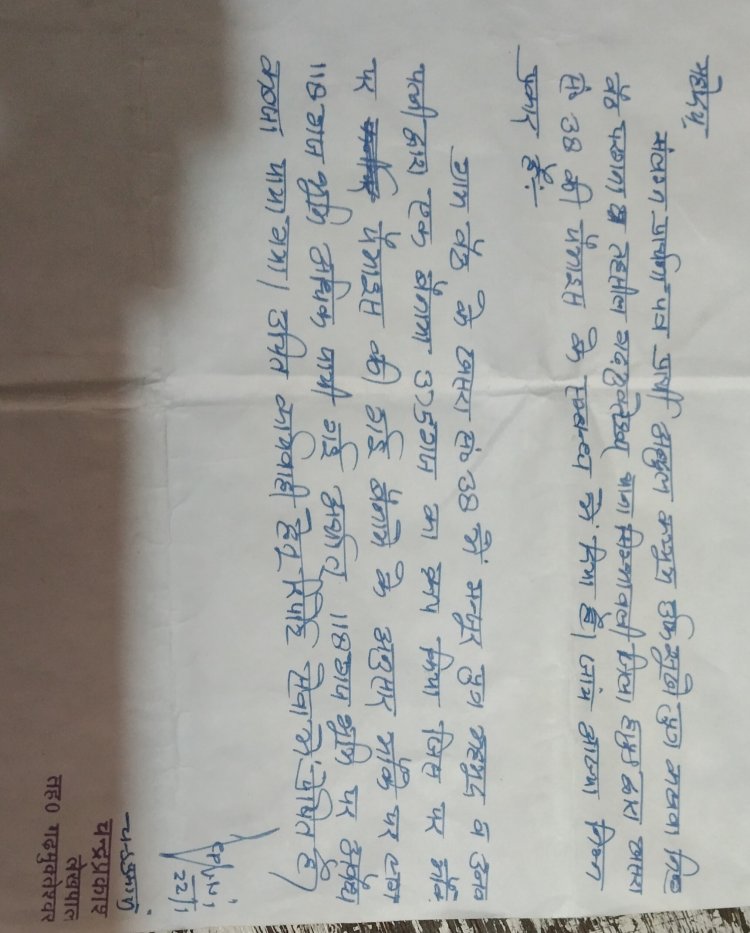 महोदय,
संलग्न प्रार्थना पत्र प्रार्थी अब्दुल कय्यूम उर्फ मुन्ने पुत्र
परगना व तहसील गढमुक्तेश्वर थाना जिला हापुड द्वारा खसरा
सं० 38 की पैमाइश के सम्बन्ध में दिया है। जांच आख्या निम्न
प्रकार है:-
ग्राम बैठ के खसरा सं० 38 में मन्सूर पुत्र महमूद व उनकी
पत्नी द्वारा एक बैनामा गज का क्रय किया जिस पर
पर पैमाइश की गई बैनामे के अनुसार मौके पर
118 गज भूमि अधिक पायी गई अर्थात 118 गज भूमि पर अवैध
कब्जा पाया गया। उचित कार्यवाही हेतु रिपोर्ट सेवा में प्रेषित है।
22/1
चन्द्रप्रकाश
लेखपाल
तह0 गढ़मुक्तेश्वर